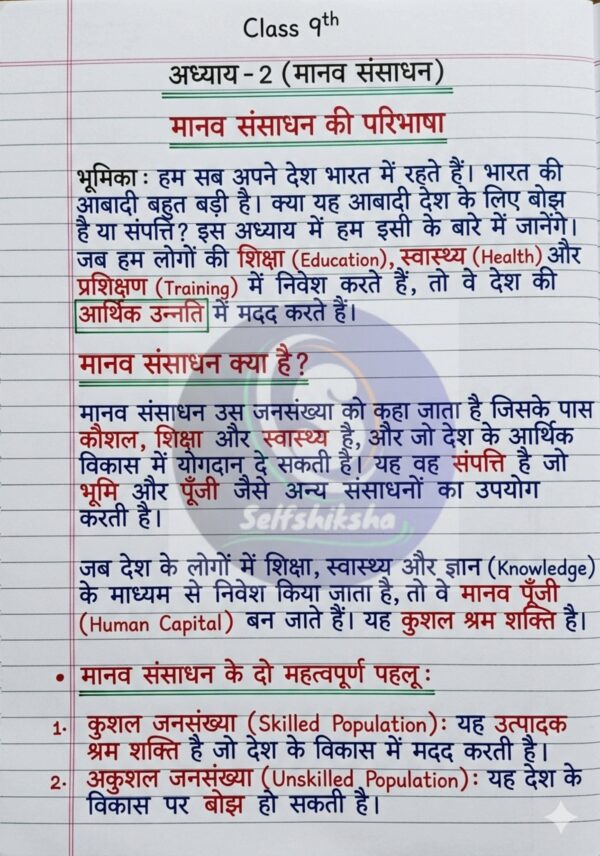 Class 9th
अध्याय - 2 (मानव संसाधन)
मानव संसाधन की परिभाषा
भूमिका : हम सब अपने देश भारत में रहते हैं। भारत की
आबादी बहुत बड़ी है। क्या यह आबादी देश के लिए बोझ
है या संपत्ति? इस अध्याय में हम इसी के बारे में जानेंगे।
जब हम लोगों की शिक्षा (Education), स्वास्थ्य (Health) और
प्रशिक्षण (Training) में निवेश करते हैं, तो वे देश की
आर्थिक उन्नति में मदद करते हैं।
मानव संसाधन क्या है?
मानव संसाधन उस जनसंख्या को कहा जाता है जिसके पास
कौशल, शिक्षा और स्वास्थ्य है, और जो देश के आर्थिक
विकास में योगदान दे सकती है। यह वह संपत्ति है जो
भूमि और पूँजी जैसे अन्य संसाधनों का उपयोग
करती है।
Selfshiksha
जब देश के लोगों में शिक्षा, स्वास्थ्य और ज्ञान (Knowledge)
के माध्यम से निवेश किया जाता है, तो वे मानव पूँजी
(Human Capital) बन जाते हैं। यह कुशल श्रम शक्ति है।
• मानव संसाधन के दो महत्वपूर्ण पहलू :
1. कुशल जनसंख्या (Skilled Population): यह उत्पादक
श्रम शक्ति है जो देश के विकास में मदद करती है।
2. अकुशल जनसंख्या (Unskilled Population): यह देश के
विकास पर बोझ हो सकती है।